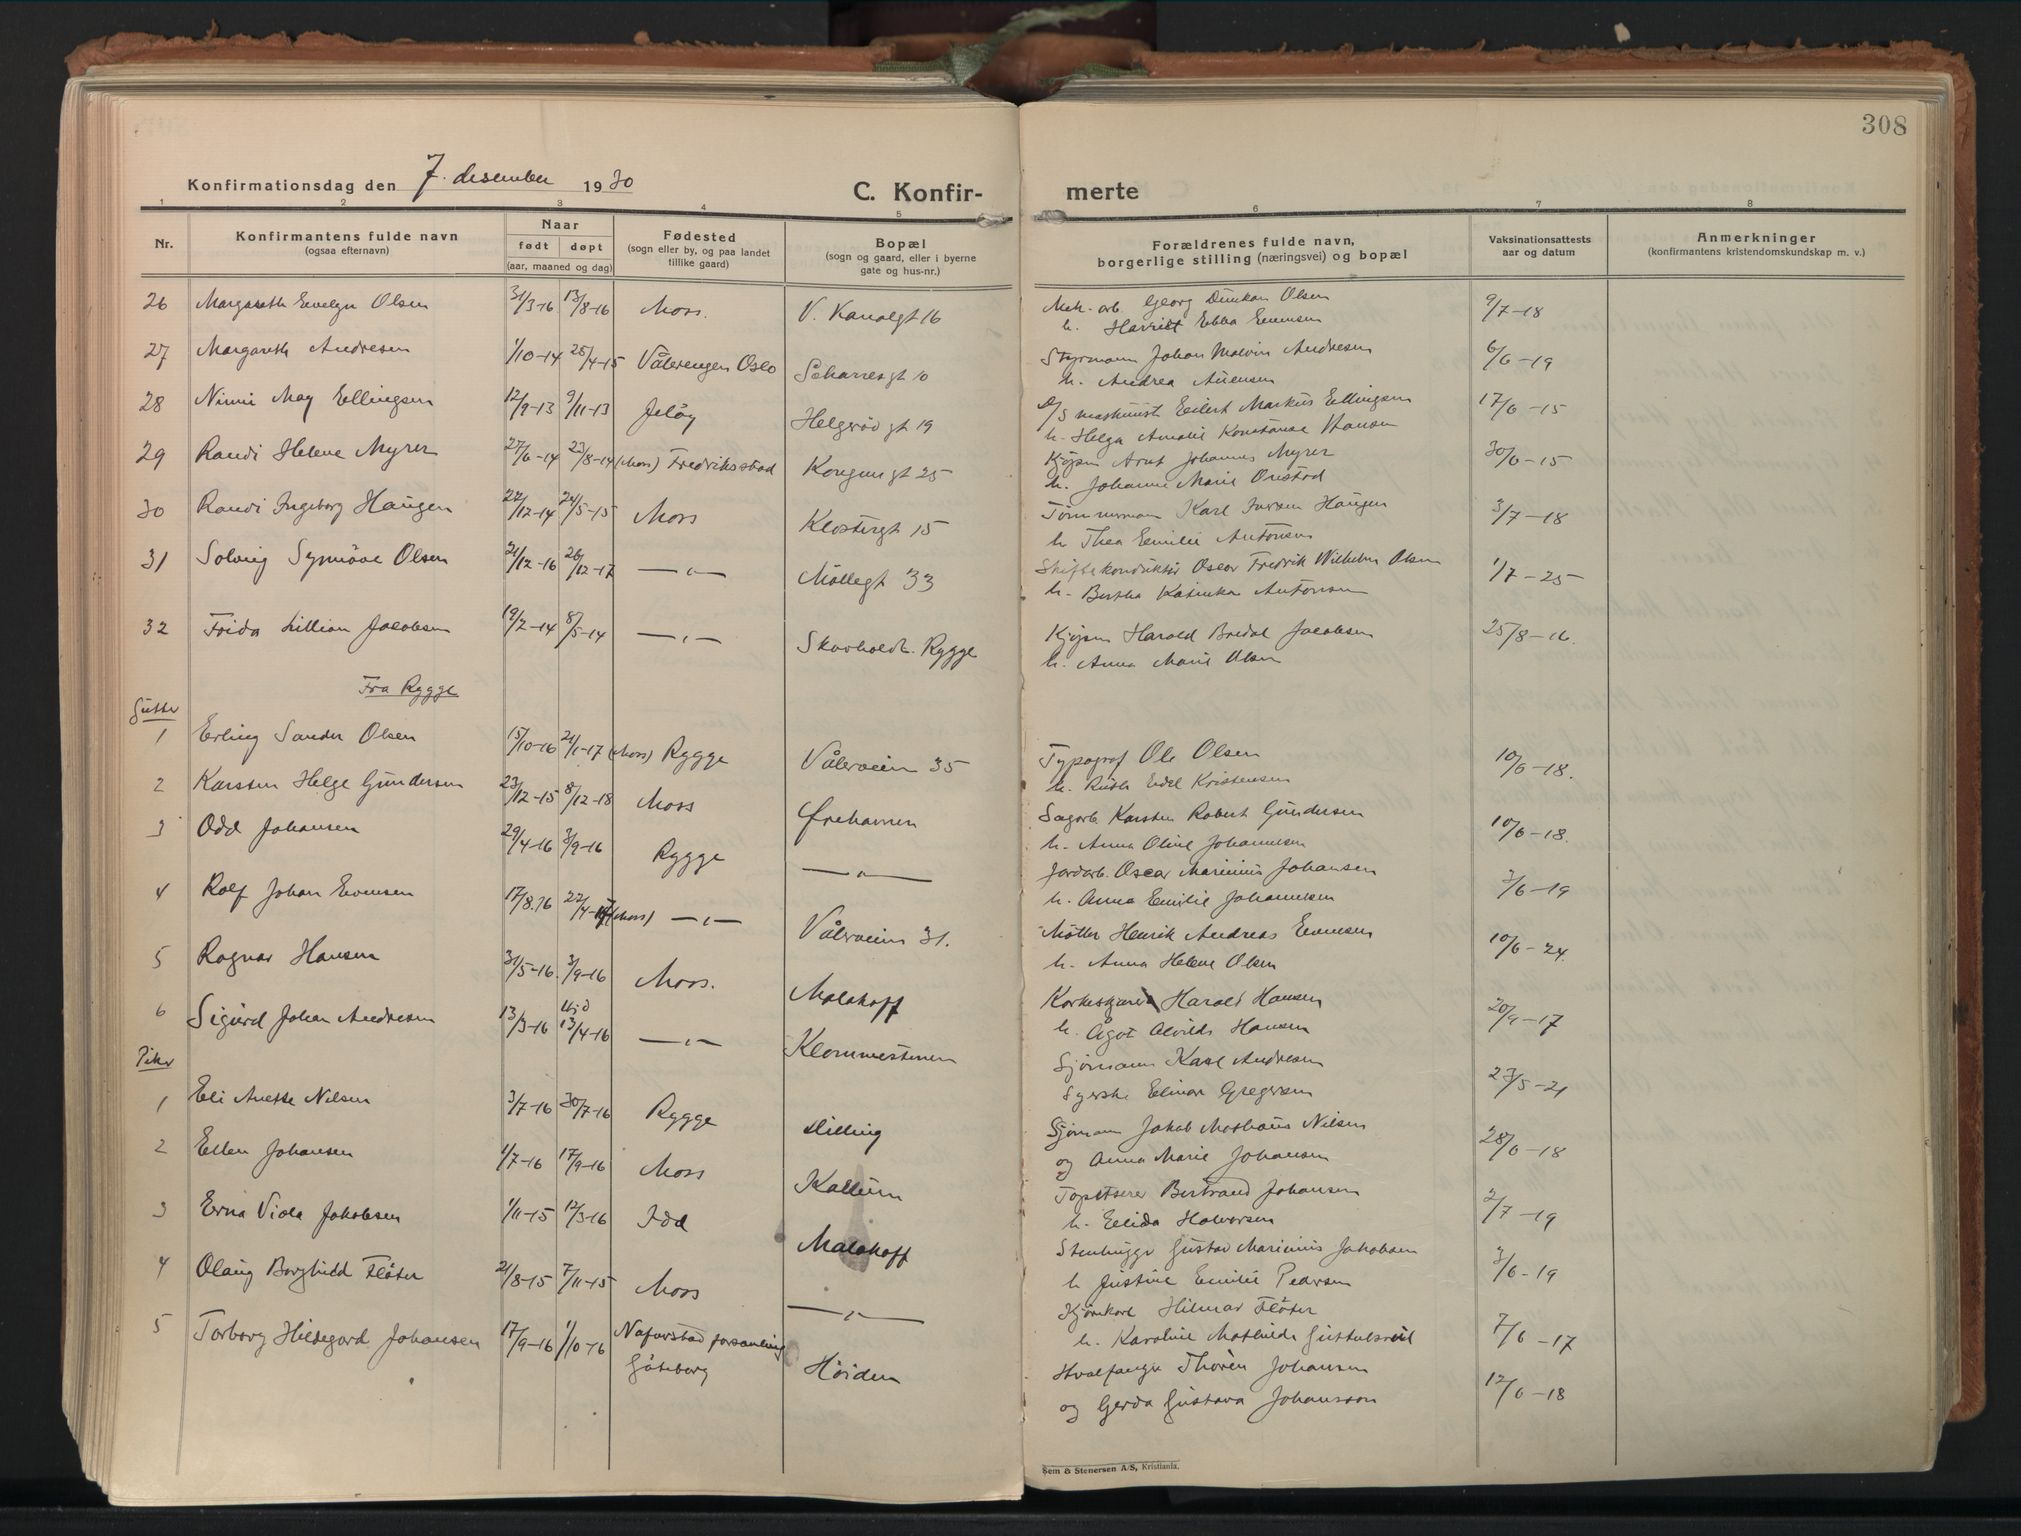 308
Konfirmationsdag den 7. desember 1930
C. Konfir-
merte
1 2 3 4 5 6 7 8
Nr.
Konfirmantens fulde navn
(ogsaa efternavn)
Naar
født døpt
(aar, maaned og dag)
Fødested
(sogn eller by, og paa landet
tillike gaard)
Bopæl
(sogn og gaard, eller i byerne
gate og hus-nr.)
Forældrenes fulde navn,
borgerlige stilling (næringsvei) og bopæl
Vaksinationsattests
aar og datum
Anmerkninger
(konfirmantens kristendomskundskap m. v.)
26 Margareth Evelyn Olsen 31/3-16 13/8-16 Moss. V. Kanalgt 16 Mek. arb. Georg Dunkan Olsen 9/7-18
h. Harriet Ebba Evensen
27 Margareth Andresen 1/10-14 25/4-15 Vålerengen Oslo gt 10 Styrmann Johan Malvin Andresen 6/6-19
h. Andrea
28 May Ellingsen 12/9-13 9/11-13 Jeløy Helgerødgt 19 D/S maskinist Eilert Markus Ellingsen 17/6-15
h. Helga Amalie Konstanse Hansen
29 Randi Helene Myrer 27/6-14 23/8-14 (Moss) Fredriksstad Kongensgt 25 Kjøpm Arnt Johannes Myrer 30/6-15
h. Johanne Marie Onstad
30 Randi Ingeborg Haugen 22/12-14 24/5-15 Moss Klostergt 15 Tömmermann Karl Iversen Haugen 3/7-18
h Thea Emilie Antonsen
31 Solveig Synnöve Olsen 21/12-16 26/12-17 —"— Möllegt 33 Skiftekonduktör Oscar Fredrik Wilhelm Olsen 1/7-25
h. Bertha Katinka Antonsen
32 Frida Lillian Jacobsen 19/2-14 8/5-14 —"— Skovholdt. Rygge Kjøpm Harald Bredal Jacobsen 25/8-16.
h. Anna Marie Olsen
Fra Rygge
Gutter
1 Erling Sander Olsen 15/10-16 21/1-17 (Moss) Rygge Vålerveien 35 Typograf Ole Olsen 10/6-18.
h. Ruth Kristensen
2 Karsten Helge Gundersen 23/12-15 8/12-18 Moss Ørehavnen Sagarb Karsten Robert Gundersen 10/6-18.
h. Anna Oline Johannesen
3 Odd Johansen 29/4-16 3/9-16 Rygge —"— Jordarb. Oscar Marinius Johansen 3/6-19
h. Anna Emilie Johannesen
4 Rolf Johan Evensen 17/8.16 22/4-17 (Moss) —"— Vålerveien 31. Møller Henrik Andreas Evensen 10/6-24.
h. Anna Helene Olsen
5 Ragnar Hansen 31/5-16. 3/9-16 Moss. Malakoff Korkeskjærer Harald Hansen 20/9-17
h. Ågot Alvilde Hansen
6 Sigurd Johan Andresen 13/3-16 13/4-16 —"— Klommestenen Sjömann Karl Andresen 27/5-21
Syerske Elinar Gregersen
Piker
1 Eli Anette Nilsen 3/7-16 30/7-16 Rygge Dilling Sjömann Jakob Mathæus Nilsen 28/6-18
og Anna Marie Johansen
2 Ellen Johansen 1/7-16 17/9-16 Moss Kallum Tapetserer Bertrand Johansen 2/7-19
h. Elida Halvorsen
3 Erna Viola Jakobsen 1/11-15 12/3-16 Idd Malakoff Stenhugger Gustav Marinius Jakobsen 3/6-19
h Justine Emilie Pedersen
4 Olaug Borghild Flöter 21/8-15 7/11-15 Moss —"— Kjörekarl Hilmar Flöter 7/6-17
h. Karoline Mathilde
5 Torborg Hildegard Johansen 17/9-16 1/10-16 Nafvestad forsamling Höiden Hvalfanger Thorèn Johansen 12/6-18
Göteborg
og Gerda Gustava Johansson
Sem & Stenersen A/S, Kristiania.